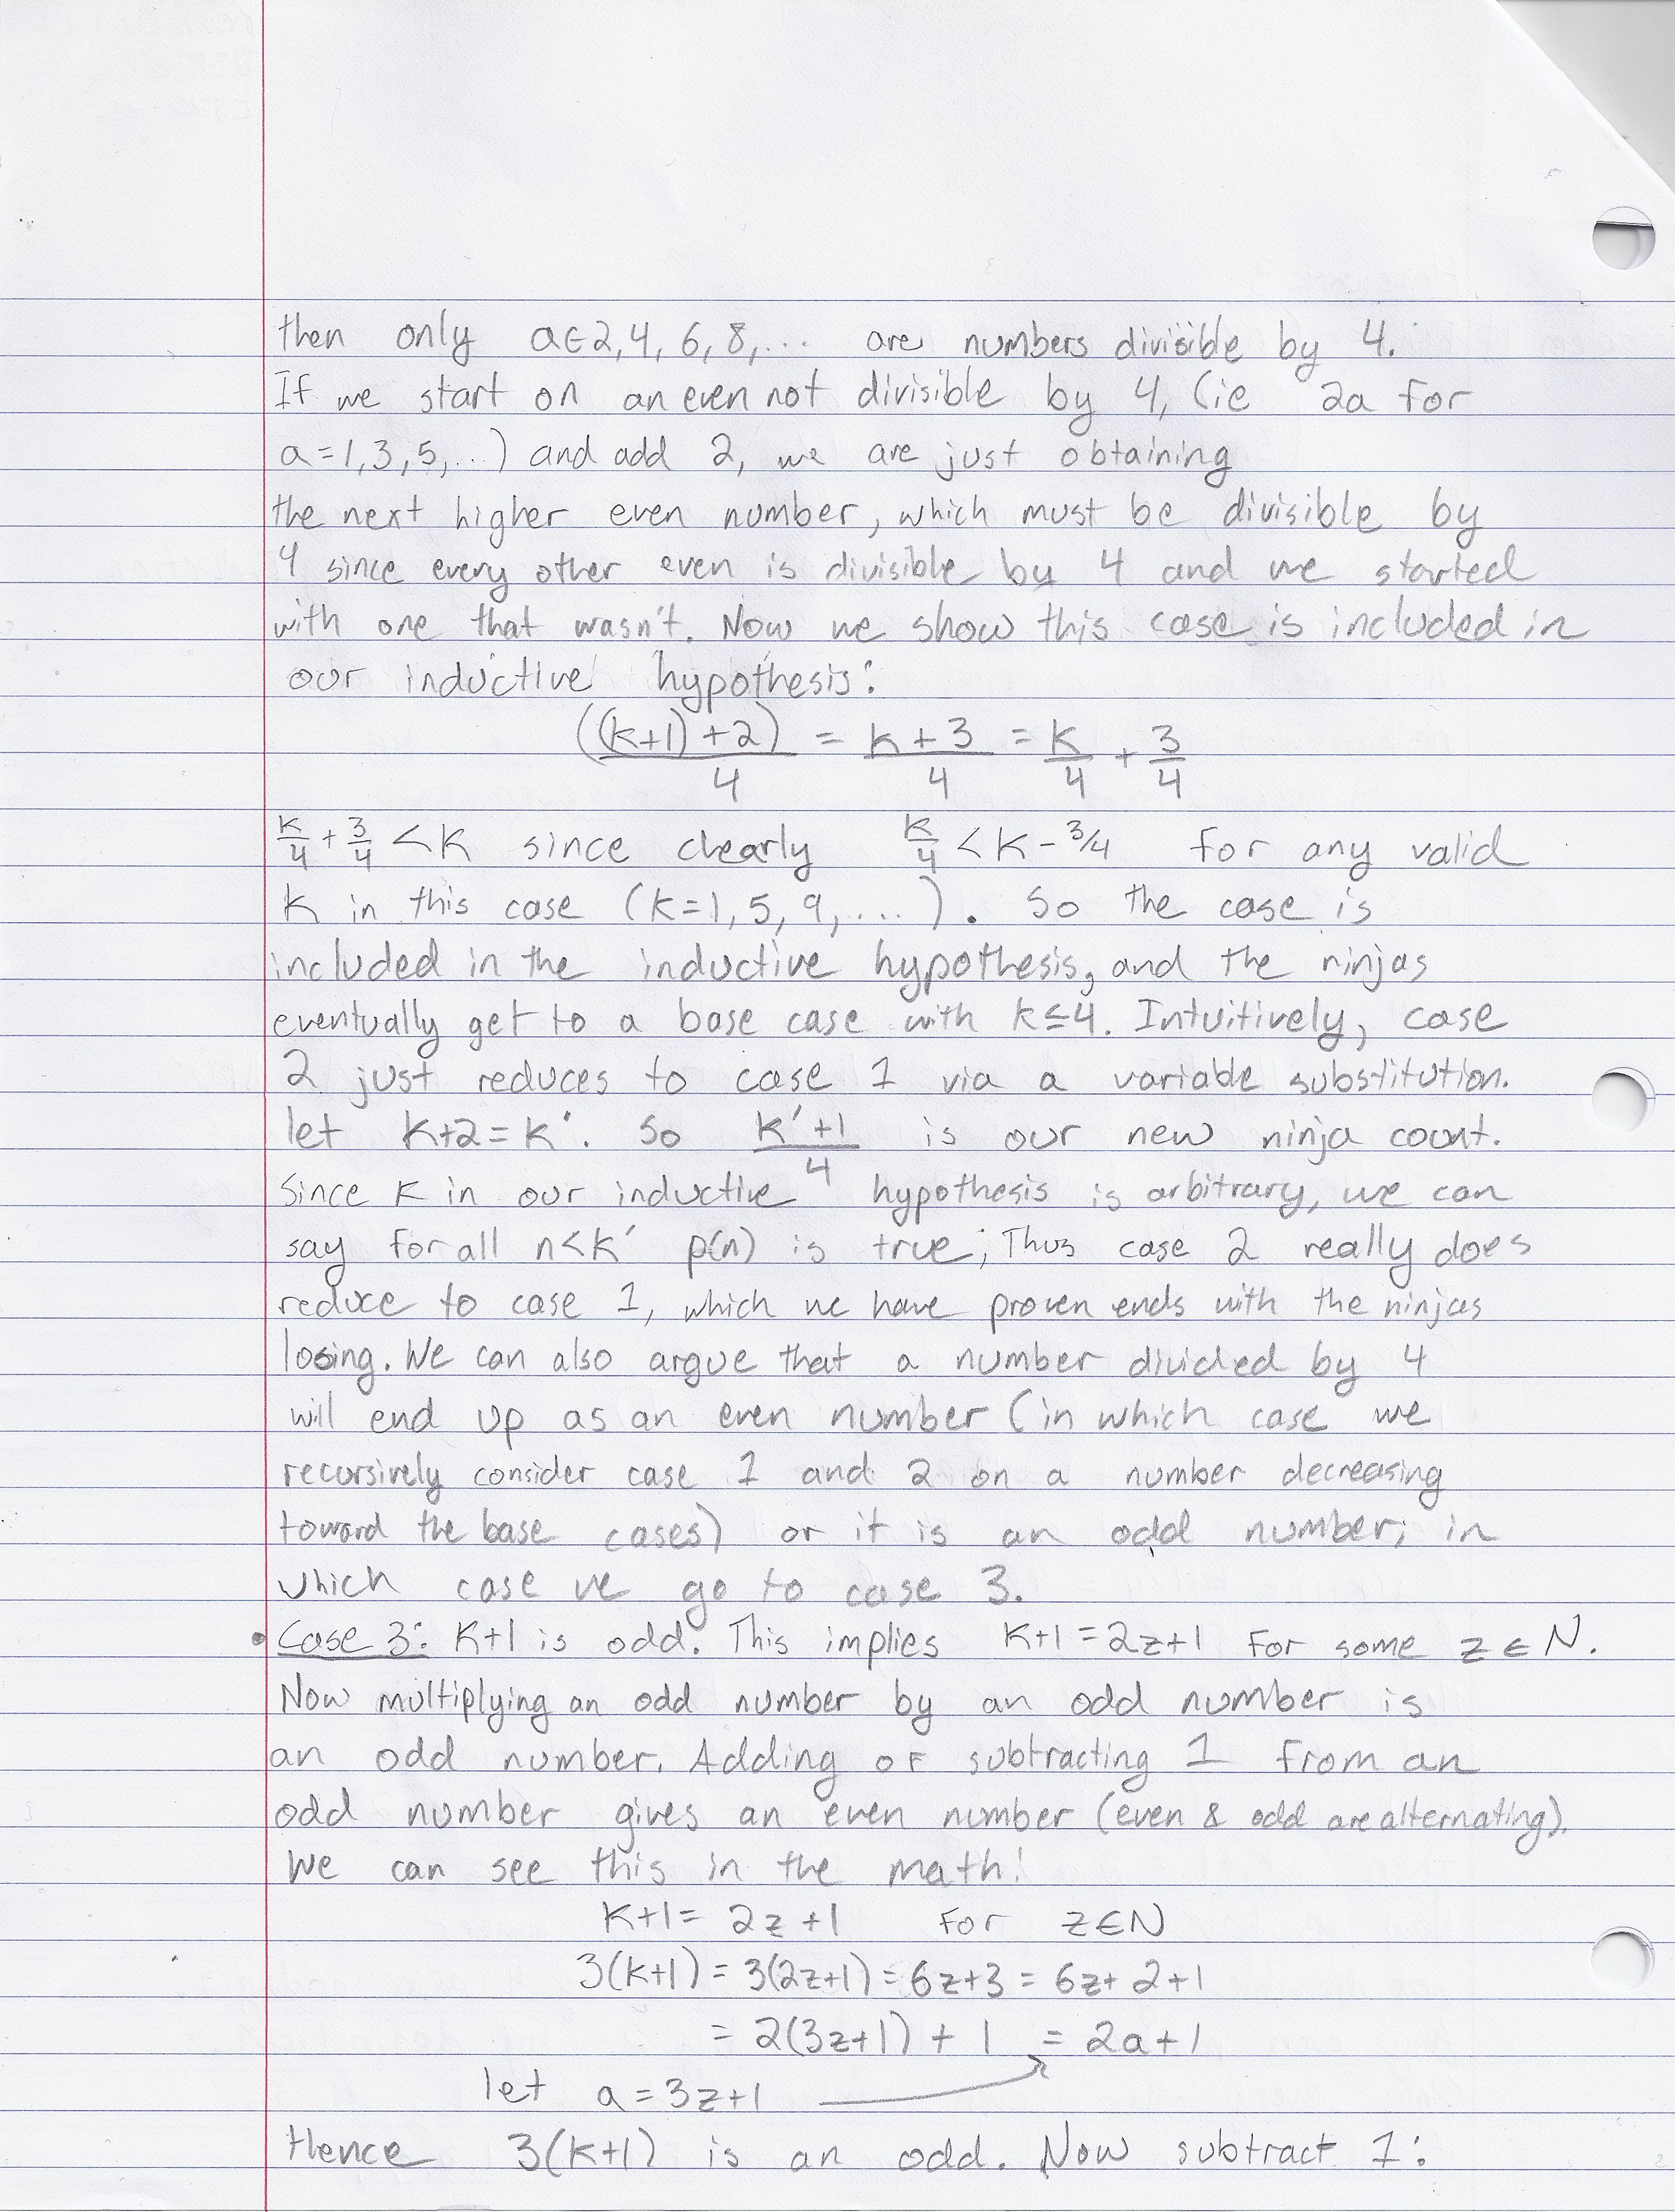 then only a∈2,4,6,8,... are numbers divisible by 4.
If we start on an even not divisible by 4, (ie 2a for
a=1,3,5,...) and add 2, we are just obtaining
the next higher even number, which must be divisible by
4 since every other even is divisible by 4 and we started
with one that wasn't. Now we show this case is included in
our inductive hypothesis:
((k+1)+2)/4 = k+3/4 = k/4 + 3/4
k/4 + 3/4 < k since clearly k/4 < k - 3/4 for any valid
k in this case (k=1,5,9,....). So the case is
included in the inductive hypothesis, and the ninjas
eventually get to a base case with k≤4. Intuitively, case
2 just reduces to case 1 via a variable substitution.
let k+2=k'. So k'+1/4 is our new ninja count.
Since k in our inductive hypothesis is arbitrary, we can
say for all n<k' p(n) is true; Thus case 2 really does
reduce to case 1, which we have proven ends with the ninjas
losing. We can also argue that a number divided by 4
will end up as an even number (in which case we
recursively consider case 1 and 2 on a number decreasing
toward the base cases) or it is an odd number; in
which case we go to case 3.
• Case 3: k+1 is odd. This implies k+1=2z+1 for some z∈N.
Now multiplying an odd number by an odd number is
an odd number. Adding or subtracting 1 from an
odd number gives an even number (even & odd are alternating).
We can see this in the math:
k+1= 2z+1 for z∈N
3(k+1) = 3(2z+1) = 6z+3 = 6z+2+1
= 2(3z+1) + 1 = 2a+1
let a=3z+1
Hence 3(k+1) is an odd. Now subtract 1: